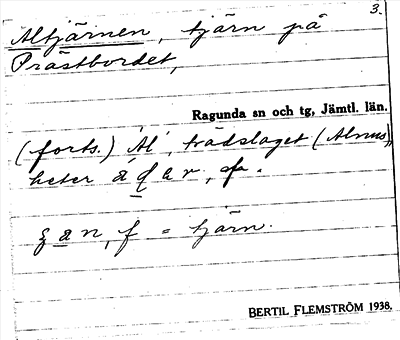 3.
Altjärnen, tjärn på
Prästbordet,
Ragunda sn och tg, Jämtl. län.
(forts.) 'Al', trädslaget (Alnus)
heter
f = tjärn.
BERTIL FLEMSTRÖM 1938.